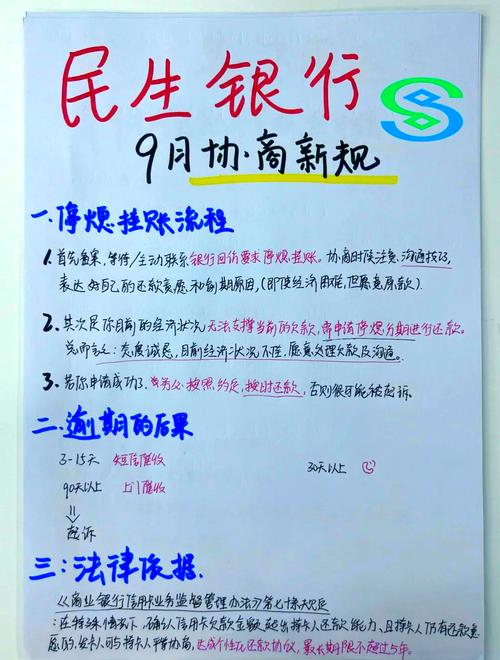 民生银行
9月协商新规
一.停熄挂账流程
1. 首先备案,等待/主动联系银行回访要求停熄挂账。协商时候注意:沟通技巧,
表达好自己的还款意愿和逾期原因,(即使经济困难,但愿意还款).
2. 其次是你目前的经济状况无法支撑当前的欠款,需申请停熄分期进行还款。
总而言之:态度诚恳,目前经济状况不佳,愿意处理欠款及沟通。
3. 若你申请成功了,务必按照约定,按时还款,否则很可能被起诉。
二.逾期的后果
3-15天 短信催收 30天以上
90天以上 上门催收
起诉
三:法律依据.
《商业银行信用卡业务监督管理办法》第七十条规定
:在特殊情况下,确认信用卡欠款金额超出持卡人还款能力、且持卡人仍有还款意
愿的,发卡人可与持卡人平等协商,达成个性化还款协议,最长期限不超过5年。